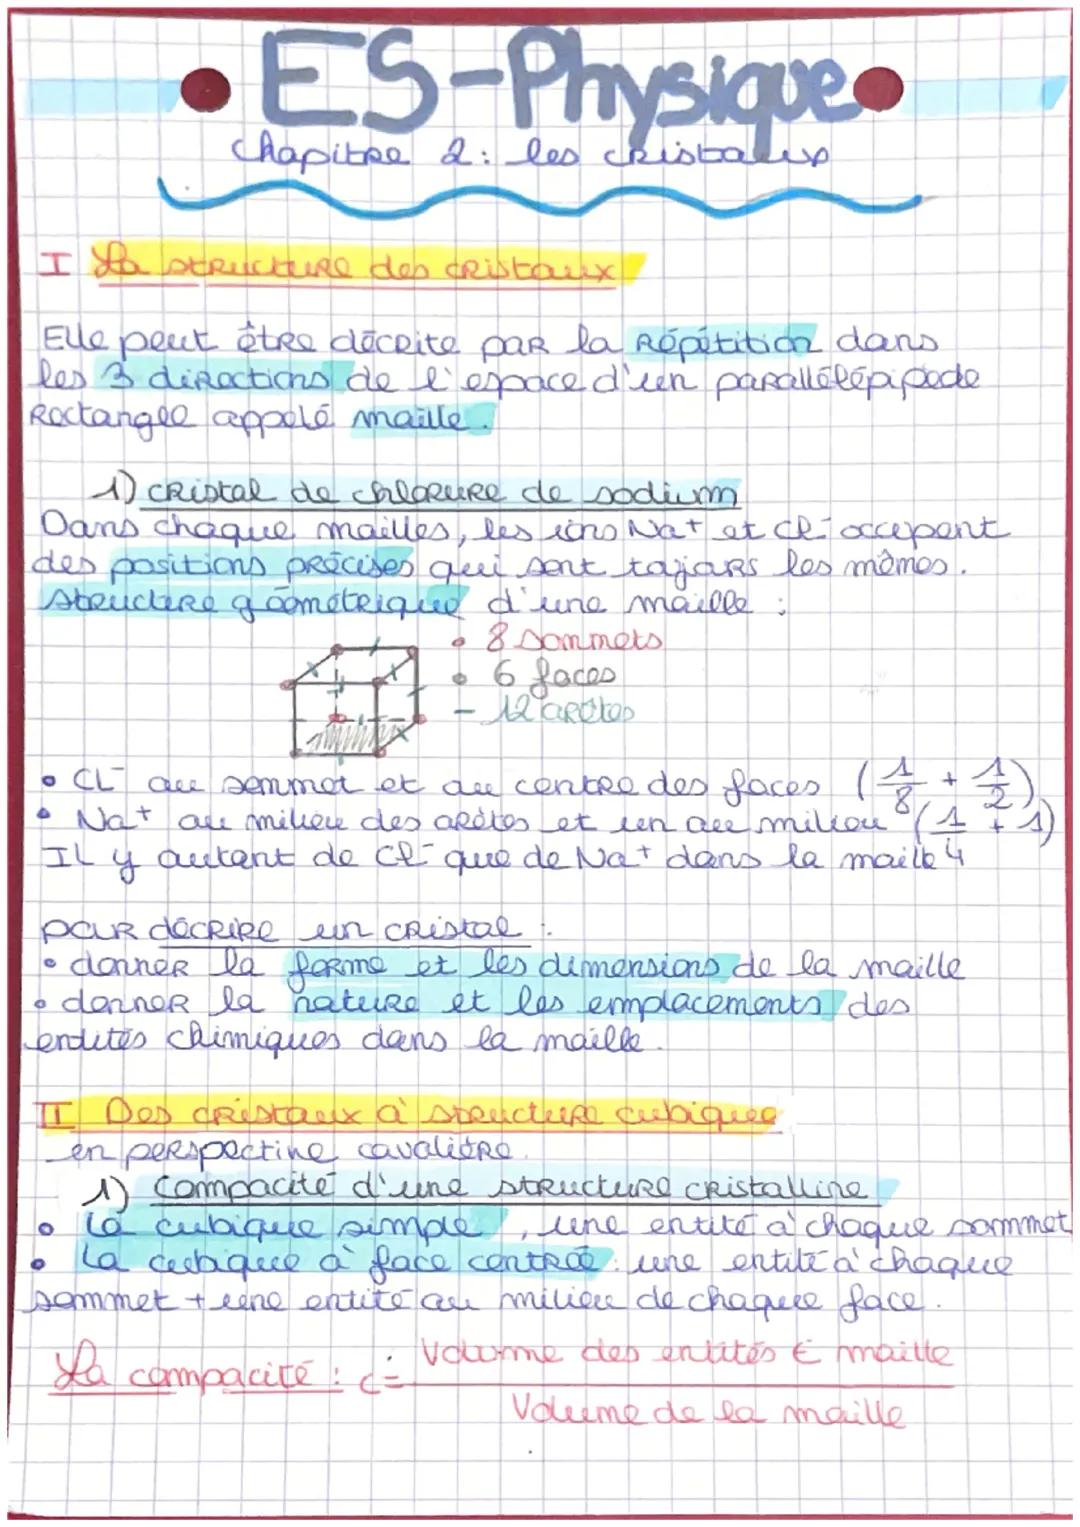 ES-Physique
Chapitre 2: les cristaux
I La structure des cristaux
Elle peut être décrite par la répétition dans
les 3 directions de l'espace d'un parallélépipède
Rectangle appelé maille.
1) cristal de chlorure de sodium
Dans chaque mailles, les ions Na+ et Cl- occupent
des positions précises qui sont toujours les mêmes.
structure géométrique d'une maille :
• 8 sommets
• 6 faces
- 12 arêtes
• CL- au sommet et au centre des faces (1/8 + 1/2)
• Na+ au milieu des arêtes et un au milieu (1/4 + 1)
IL y autant de Cl- que de Na+ dans la maille
pour décrire un cristal :
• donner la forme et les dimensions de la maille
• donner la nature et les emplacements des
entités chimiques dans la maille.
II Des cristaux à structure cubique
en perspective cavalière.
1) Compacité d'une structure cristalline
• la cubique simple, une entité à chaque sommet
• la cubique à face centrée : une entité à chaque
sommet + une entité au milieu de chaque face.
La compacité : c = Volume des entités ∈ maille
Volume de la maille